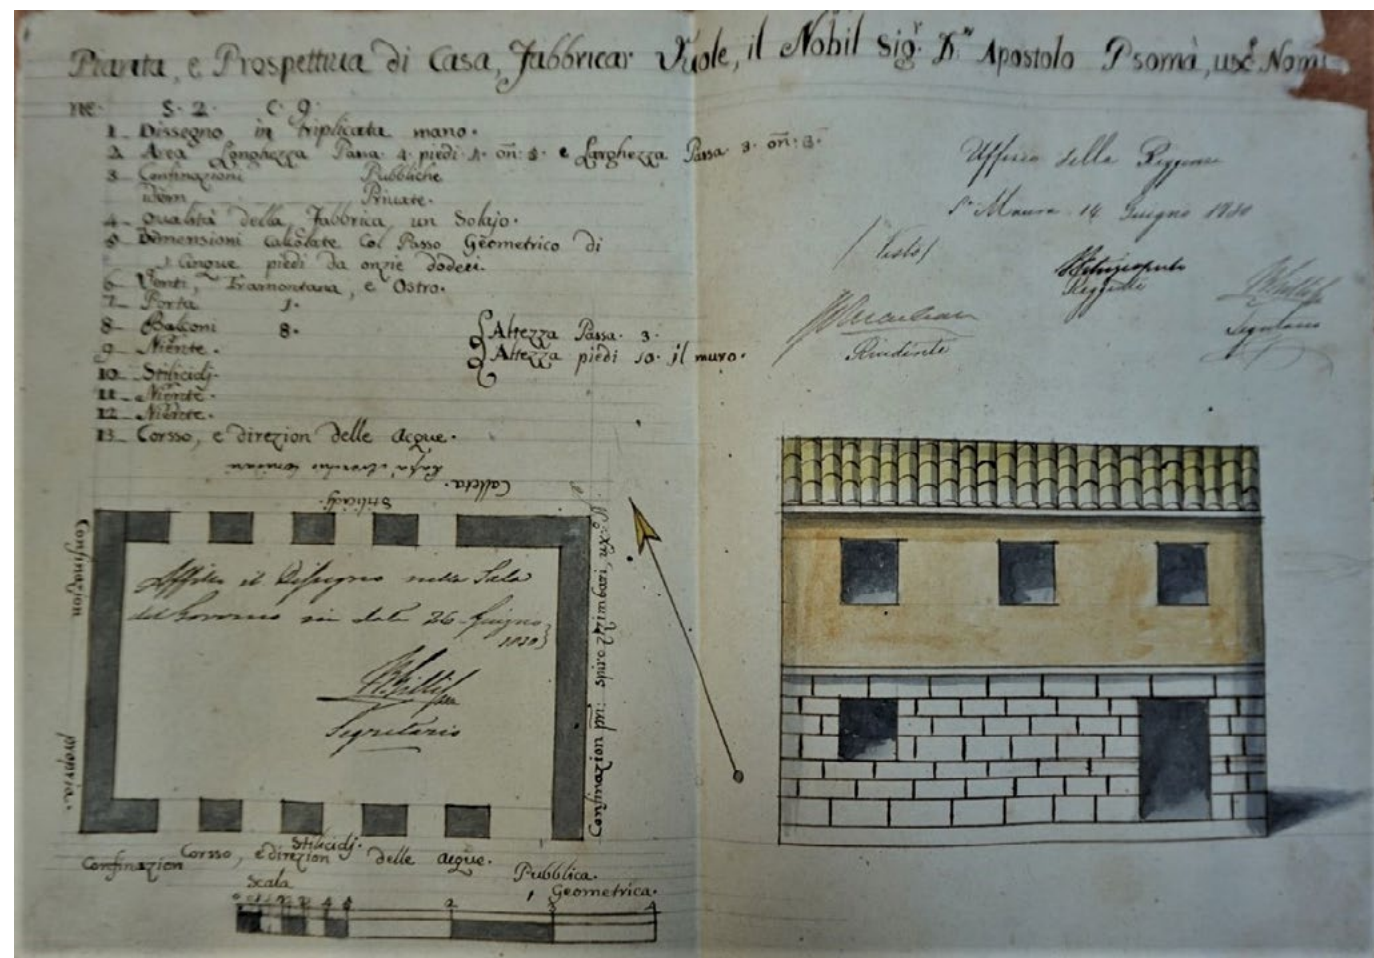 Pianta, e Prospettiva di Casa, Fabbricar Vuole, il Nobil Sig.r D.n Apostolo Psomà, ux.o Nomi-
ne. S. 2. C. 9.
1_ Dissegno in triplicata mano.
2_ Area Longhezza Passa 4. piedi 1. on: 8. e Larghezza Passa 3. on: 3.
3_ Confinazioni Pubbliche
idem Private.
4_ Qualità della Fabbrica, un Solajo.
5_ Dimensioni Calcolate Col Passo Geometrico di
Cinque piedi da onzie dodeci.
6_ Venti, Tramontana, e Ostro.
7_ Porta 1.
8_ Balconi 8.
9_ Niente.
10_ Stilicidj.
11_ Niente.
12_ Niente.
13_ Corsso, e direzion delle acque.
Altezza Passa. 3.
Altezza piedi 10. il muro.
Uffizio della Reggenza
S.ta Maura 14 Giugno 1830
(Visto)
Reggente
Segretario
Calletta.
Stilicidj.
Confinazion
propria.
Affisso il Disegno nella Sala
del Governo in data 26 Giugno
1830
Segretario
Confinazion pm: spiro Zzimbari, ux.o N.o
Stilicidj.
Confinazion Corsso, e direzion delle acque. Pubblica.
Scala Geometrica.